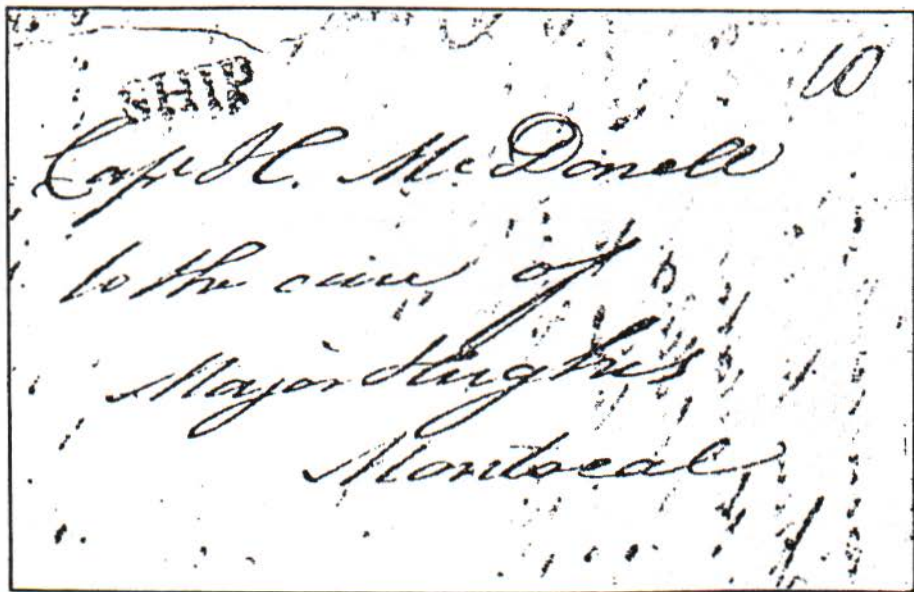 SHIP
10
Capt H. McDonell
to the care of
Major Hughes
Montreal